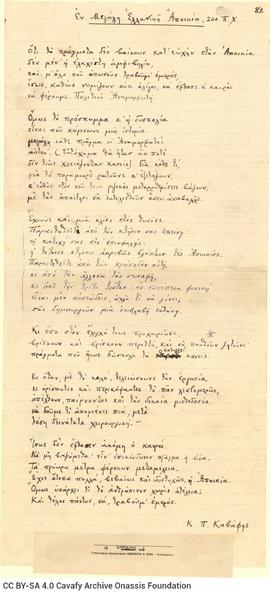 82.
Ἐν Μεγάλῃ Ἑλληνικῇ Ἀποικίᾳ, 200 Π.Χ.
Ὅτι τὰ πράγματα δὲν βαίνουν κατ' εὐχὴν στὴν Ἀποικία
δὲν μέν' ἡ ἐλαχίστη ἀμφιβολία,
καὶ μ' ὅλο ποὺ ὁπωσοῦν τραβοῦμ' ἐμπρός,
ἴσως, καθὼς νομίζουν οὐκ ὀλίγοι, νὰ ἔφθασε ὁ καιρὸς
νὰ φέρουμε Πολιτικὸ Ἀναμορφωτή.
Ὅμως τὸ πρόσκομμα κ' ἡ δυσκολία
εἶναι ποὺ κάμνουνε μιὰ ἱστορία
μεγάλη κάθε πρᾶγμα οἱ Ἀναμορφωταὶ
αὐτοί. (Εὐτύχημα θὰ ἦταν ἂν ποτὲ
δὲν τοὺς χρειάζονταν κανείς.) Γιὰ κάθε τί,
γιὰ τὸ παραμικρὸ ρωτοῦνε κ' ἐξετάζουν,
κ' εὐθὺς στὸν νοῦ τους ριζικὲς μεταρρυθμίσεις βάζουν,
μὲ τὴν ἀπαίτησι νὰ ἐκτελεσθοῦν ἄνευ ἀναβολῆς.
Ἔχουνε καὶ μιὰ κλίσι στὲς θυσίες.
Παραιτηθεῖτε ἀπὸ τὴν κτῆσιν σας ἐκείνη·
ἡ κατοχή σας εἶν' ἐπισφαλής·
ἡ τέτοιες κτήσεις ἀκριβῶς βλάπτουν τὲς Ἀποικίες.
Παραιτηθεῖτε ἀπὸ τὴν πρόσοδον αὐτή,
κι ἀπὸ τὴν ἄλληνα τὴν συναφῆ,
κι ἀπὸ τὴν τρίτη τούτην· ὡς συνέπεια φυσική·
εἶναι μὲν οὐσιώδεις, ἀλλὰ τί νὰ γίνει;
σᾶς δημιουργοῦν μιὰ ἐπιβλαβῆ εὐθύνη.
Κι ὅσο στὸν ἔλεγχό τους προχωροῦνε,
βρίσκουν καὶ βρίσκουν περιττά, καὶ νὰ παυθοῦν ζητοῦνε·
πράγματα ποὺ ὅμως δύσκολα τὰ καταργεῖ κανείς.
Κι ὅταν, μὲ τὸ καλό, τελειώσουνε τὴν ἐργασία,
κι ὁρίσαντες καὶ περικόψαντες τὸ πᾶν λεπτομερῶς,
ἀπέλθουν, παίρνοντας καὶ τὴν δικαία μισθοδοσία,
νὰ δοῦμε τί ἀπομένει πιά, μετὰ
τόση δεινότητα χειρουργική.—
Ἴσως δὲν ἔφθασεν ἀκόμη ὁ καιρός.
Νὰ μὴ βιαζόμεθα· εἶν' ἐπικίνδυνον πρᾶγμα ἡ βία.
Τὰ πρόωρα μέτρα φέρνουν μεταμέλεια.
Ἔχει ἄτοπα πολλά, βεβαίως καὶ δυστυχῶς, ἡ Ἀποικία.
Ὅμως ὑπάρχει τι τὸ ἀνθρώπινον χωρὶς ἀτέλεια;
Καὶ τέλος πάντων, νά, τραβοῦμ' ἐμπρός.
Κ. Π. Καβάφης
CC BY-SA 4.0 Cavafy Archive Onassis Foundation